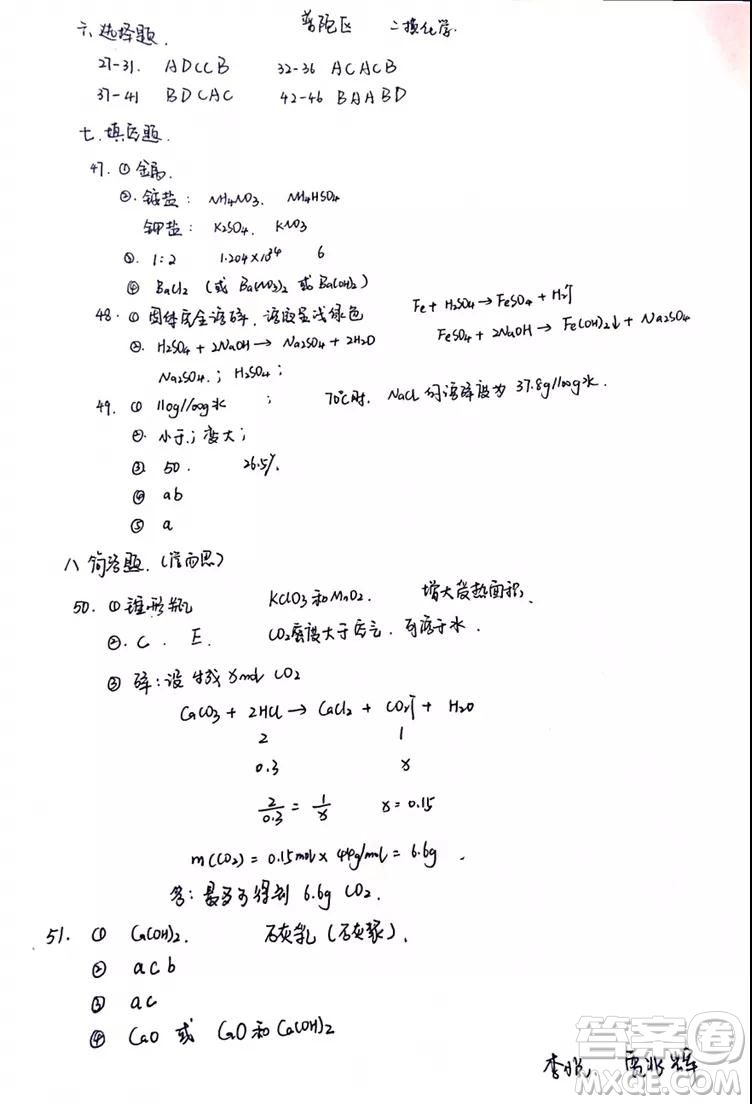 普陀区 二模化学
六、选择题.
27-31. ADCCB 32-36 ACACB
37-41 BDCAC 42-46 BAABD
七、填空题.
47. ① 金属.
②. 铵盐: NH4NO3. NH4HSO4
钾盐: K2SO4. KNO3
③. 1:2 1.204×10^24 6
④ BaCl2 (或 Ba(NO3)2 或 Ba(OH)2)
48. ① 固体完全溶解, 溶液呈浅绿色 Fe + H2SO4 → FeSO4 + H2↑
FeSO4 + 2NaOH → Fe(OH)2↓ + Na2SO4
②. H2SO4 + 2NaOH → Na2SO4 + 2H2O
Na2SO4.; H2SO4;
49. ① 110g/100g水; 70℃时, NaCl的溶解度为37.8g/100g水.
②. 小于.; 变大;
③. 50. 26.5%.
④ ab
⑤ a
八、简答题.
50. ① 锥形瓶 KClO3和MnO2. 增大受热面积,
②. C. E. CO2密度大于空气, 可溶于水.
③ 解: 设生成xmol CO2
CaCO3 + 2HCl → CaCl2 + CO2↑ + H2O
2 1
0.3 x
2/0.3 = 1/x x = 0.15
m(CO2) = 0.15mol × 44g/mol = 6.6g.
答: 最多可得到 6.6g CO2.
51. ① Ca(OH)2. 石灰乳(石灰浆).
② acb
③ ac
④ CaO 或 CaO和Ca(OH)2
答案圈
MXQE.COM